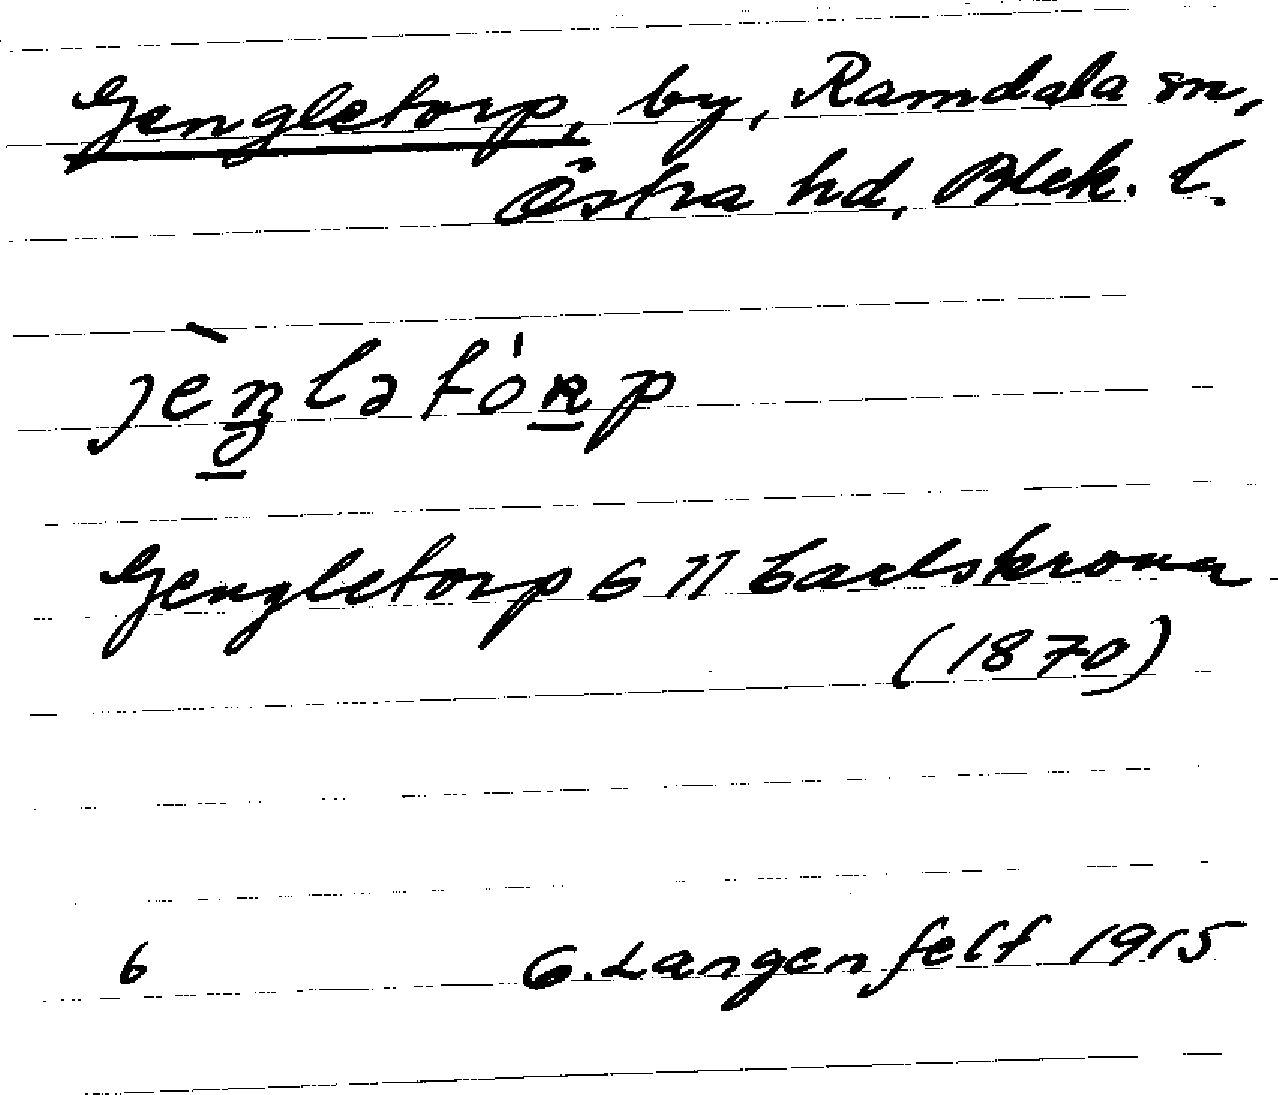 Gengletorp, by, Ramdala sn,
Östra hd, Blek. l.
jèŋlətórp
Gengletorp G II Carlskrona
(1870)
6 G. Langenfelt 1915